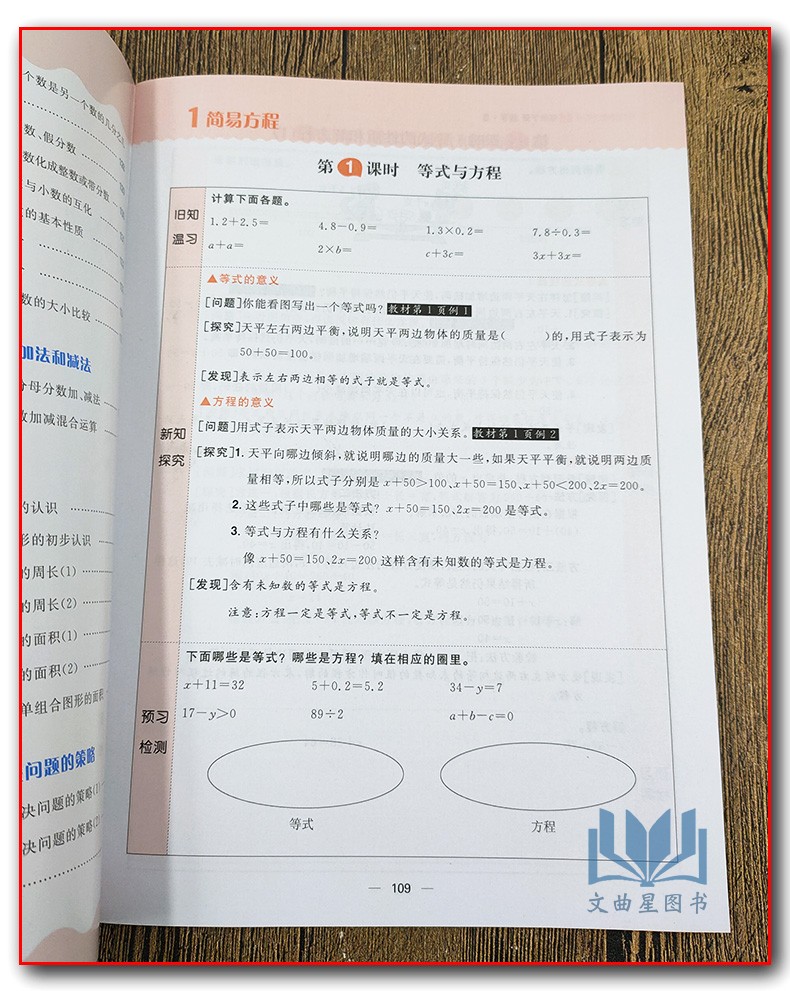 个数是另一个数的几分之几
数、假分数
数化成整数或带分数
与小数的互化
数的基本性质
数的大小比较
加法和减法
分母分数加、减法
数加减混合运算
的认识
形的初步认识
的周长(1)
的周长(2)
的面积(1)
的面积(2)
单组合图形的面积
问题的策略
决问题的策略(1)
决问题的策略(2)
1 简易方程
第1课时 等式与方程
旧知温习
计算下面各题。
1.2+2.5= 4.8-0.9= 1.3×0.2= 7.8÷0.3=
a+a= 2×b= c+3c= 3x+3x=
新知探究
▲等式的意义
[问题]你能看图写出一个等式吗? 教材第1页例1
[探究]天平左右两边平衡,说明天平两边物体的质量是( )的,用式子表示为
50+50=100。
[发现]表示左右两边相等的式子就是等式。
▲方程的意义
[问题]用式子表示天平两边物体质量的大小关系。教材第1页例2
[探究]1. 天平向哪边倾斜,就说明哪边的质量大一些,如果天平平衡,就说明两边质
量相等,所以式子分别是 x+50>100、x+50=150、x+50<200、2x=200。
2. 这些式子中哪些是等式? x+50=150、2x=200 是等式。
3. 等式与方程有什么关系?
像 x+50=150、2x=200 这样含有未知数的等式是方程。
[发现]含有未知数的等式是方程。
注意:方程一定是等式,等式不一定是方程。
预习检测
下面哪些是等式?哪些是方程?填在相应的圈里。
x+11=32 5+0.2=5.2 34-y=7
17-y>0 89÷2 a+b-c=0
等式 方程
— 109 —
文曲星图书